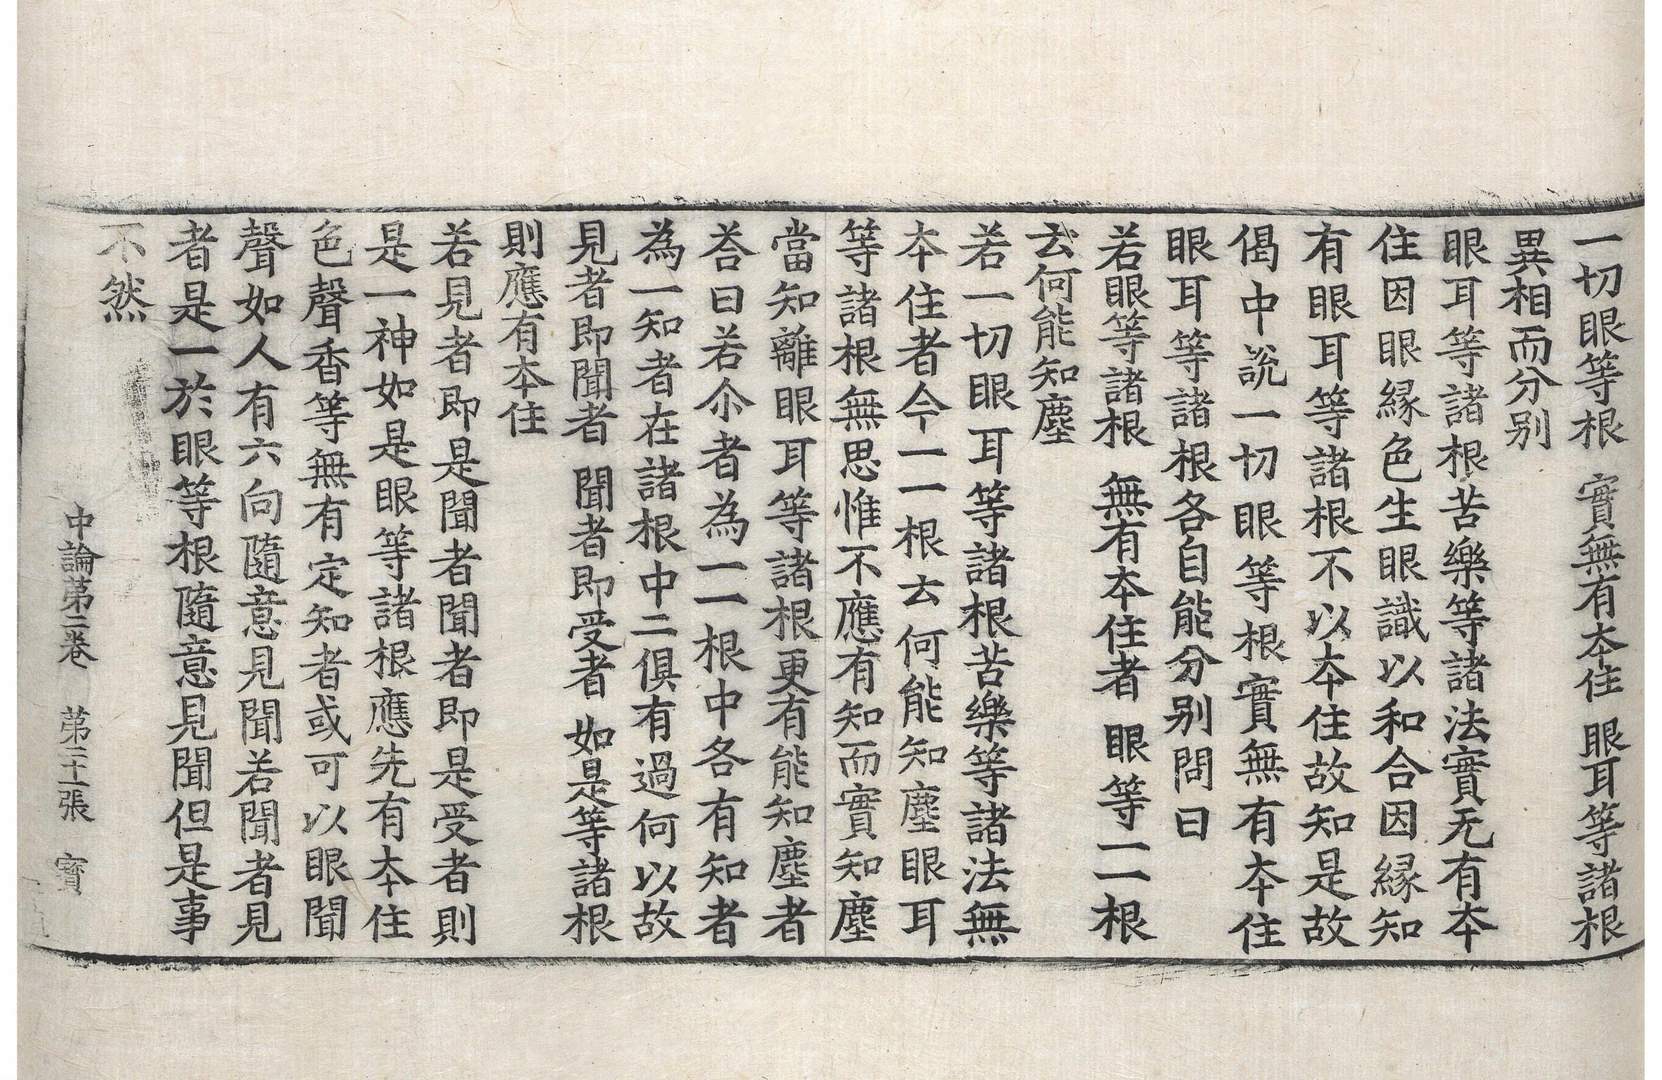 一切眼等根　實無有本住　眼耳等諸根
異相而分别
眼耳等諸根苦樂等諸法實无有本
住因眼緣色生眼識以和合因緣知
有眼耳等諸根不以本住故知是故
偈中說一切眼等根實無有本住
眼耳等諸根各自能分别問曰
若眼等諸根　無有本住者　眼等一一根
云何能知塵
若一切眼耳等諸根苦樂等諸法無
本住者今一一根云何能知塵眼耳
等諸根無思惟不應有知而實知塵
當知離眼耳等諸根更有能知塵者
荅曰若尒者為一一根中各有知者
為一知者在諸根中二俱有過何以故
見者即聞者　聞者即受者　如是等諸根
則應有本住
若見者即是聞者聞者即是受者則
是一神如是眼等諸根應先有本住
色聲香等無有定知者或可以眼聞
聲如人有六向隨意見聞若聞者見
者是一於眼等根隨意見聞但是事
不然
中論苐二卷　苐三十一張　寳